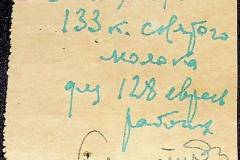 133 к. снятого
молока
для 128 евреев
рабочих